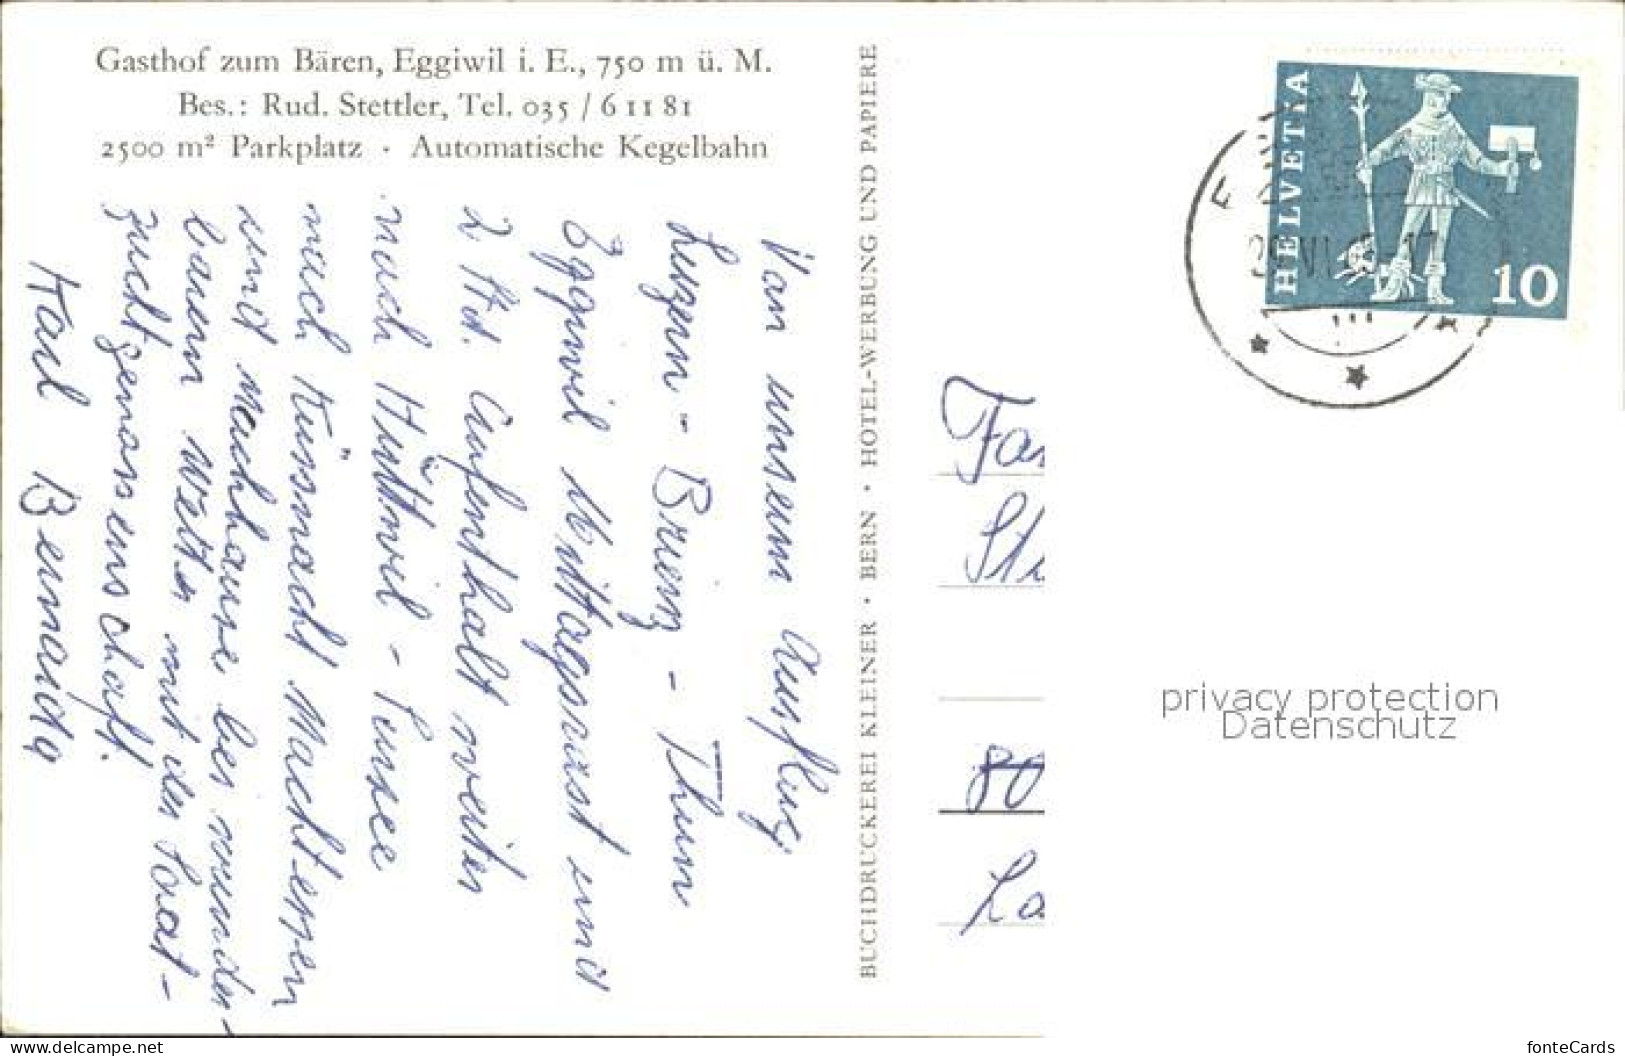 Gasthof zum Bären, Eggiwil i. E., 750 m ü. M.
Bes.: Rud. Stettler, Tel. 035 / 6 11 81
2500 m² Parkplatz · Automatische Kegelbahn
Von unserm Ausflug
Luzern - Brienz - Thun
Eggiwil Mittagsrast und
2 Std. Aufenthalt weiter
nach Huttwil - Sursee
nach Küssnacht Nachtessen
und Nachhause, bei wunder-
barem Wetter mit der Saat-
zuchtgenossenschaft.
Karl
BUCHDRUCKEREI KLEINER · BERN · HOTEL-WERBUNG UND PAPIERE
HELVETIA
10
Fa
St
80
La
privacy protection
Datenschutz
https://www.delcampe.net
fonteCards